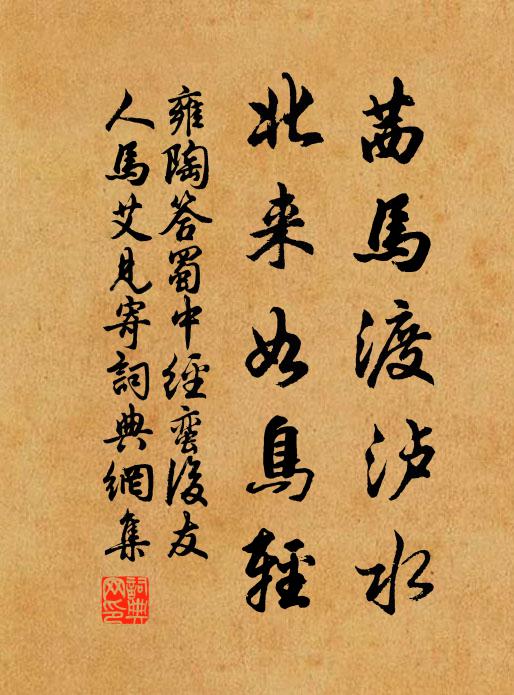 茜馬渡泸水
北来如鳥輕
雍陶答蜀中經蛮後友
人馬艾見寄詞典網集
詞典
网印